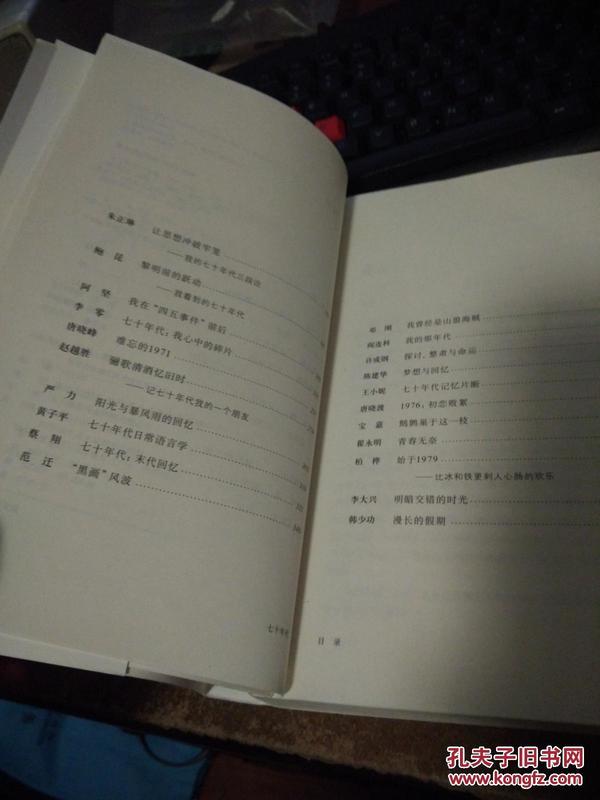 朱正琳 让思想冲破牢笼
——我的七十年代三段论
鲍昆 黎明前的跃动
——我看到的七十年代
阿坚 我在“四五事件”前后
李零 七十年代：我心中的碎片
唐晓峰 难忘的1971
赵越胜 骊歌清酒忆旧时
——记七十年代我的一个朋友
严力 阳光与暴风雨的回忆
黄子平 七十年代日常语言学
蔡翔 七十年代：末代回忆
范迁 “黑画”风波
七十年代
邓刚 我曾经是山狼海贼
阎连科 我的那年代
许成钢 探讨，整肃与命运
陈建华 梦想与回忆
王小妮 七十年代记忆片断
唐晓渡 1976：初恋败絮
宝嘉 鹪鹩巢于这一枝
翟永明 青春无奈
柏桦 始于1979
——比冰和铁更刺人心肠的欢乐
李大兴 明暗交错的时光
韩少功 漫长的假期
目录
孔夫子旧书网
www.kongfz.com